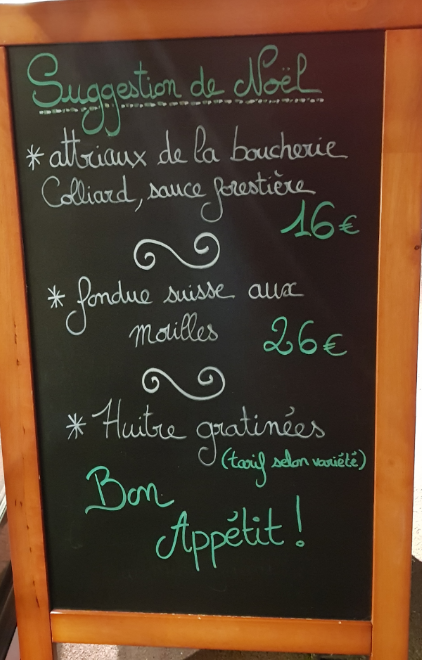 Suggestion de Noël
* attriaux de la boucherie
Colliard, sauce forestière
16€
* fondue suisse aux
morilles 26€
* Huitre gratinées
(tarif selon variété)
Bon
Appétit !